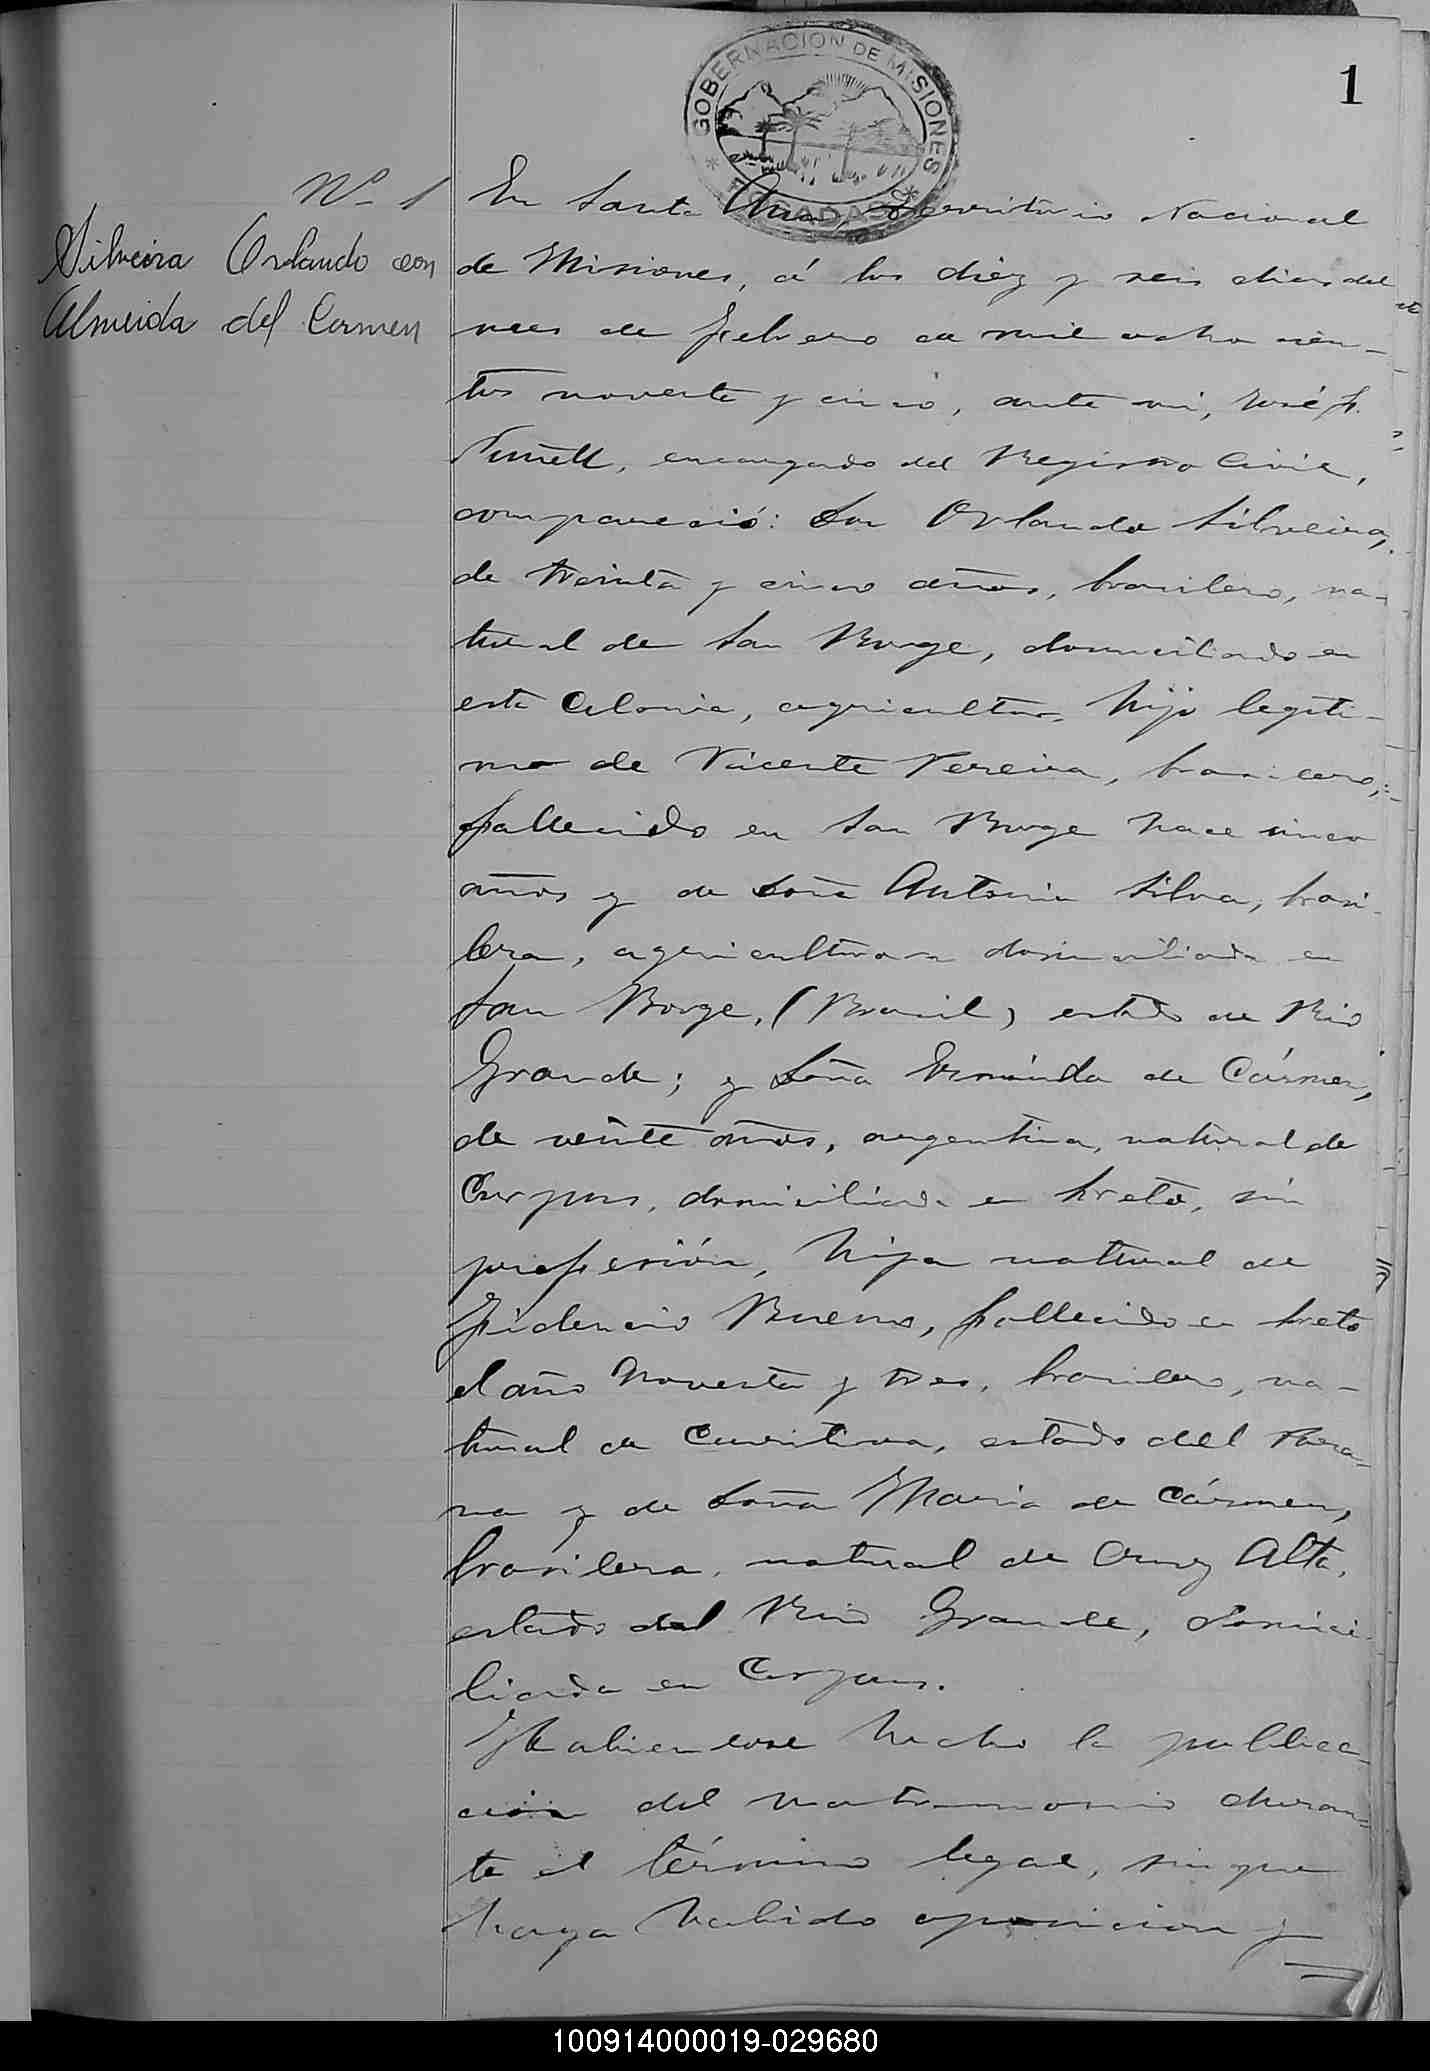 1
GOBERNACION DE MISIONES
POSADAS
Nº 1
Silveira Orlando con
Almeida del Carmen
En Santa Ana, Territorio Nacional
de Misiones, á los diez y seis dias del
mes de febrero de mil ocho cien-
tos noventa y cinco, ante mi, José
encargado del Registro Civil,
compareció: Don Orlando Silveira,
de treinta y cinco años, brasilero, na-
tural de San Borge, domiciliado en
esta Colonia, agricultor, hijo legiti-
mo de Vicente Pereira, brasilero,
fallecido en San Borge hace cinco
años y de Doña Antonia Silva, brasi-
lera, agricultora domiciliada en
San Borge, (Brasil) estado de Rio
Grande; y Doña de Cármen,
de veinte años, argentina, natural de
Corpus, domiciliada en Loreto, sin
profesión, hija natural de
Fidencio Bueno, fallecido en Loreto
el año noventa y tres, brasilero, na-
tural de Curitiva, estado del Para-
na y de Doña Maria de Cármen,
brasilera, natural de Cruz Alta,
estado del Rio Grande, domici-
liada en Corpus.
Habiendose hecho la publica-
ción del matrimonio duran-
te el término legal, sin que
haya habido oposicion y
100914000019-029680